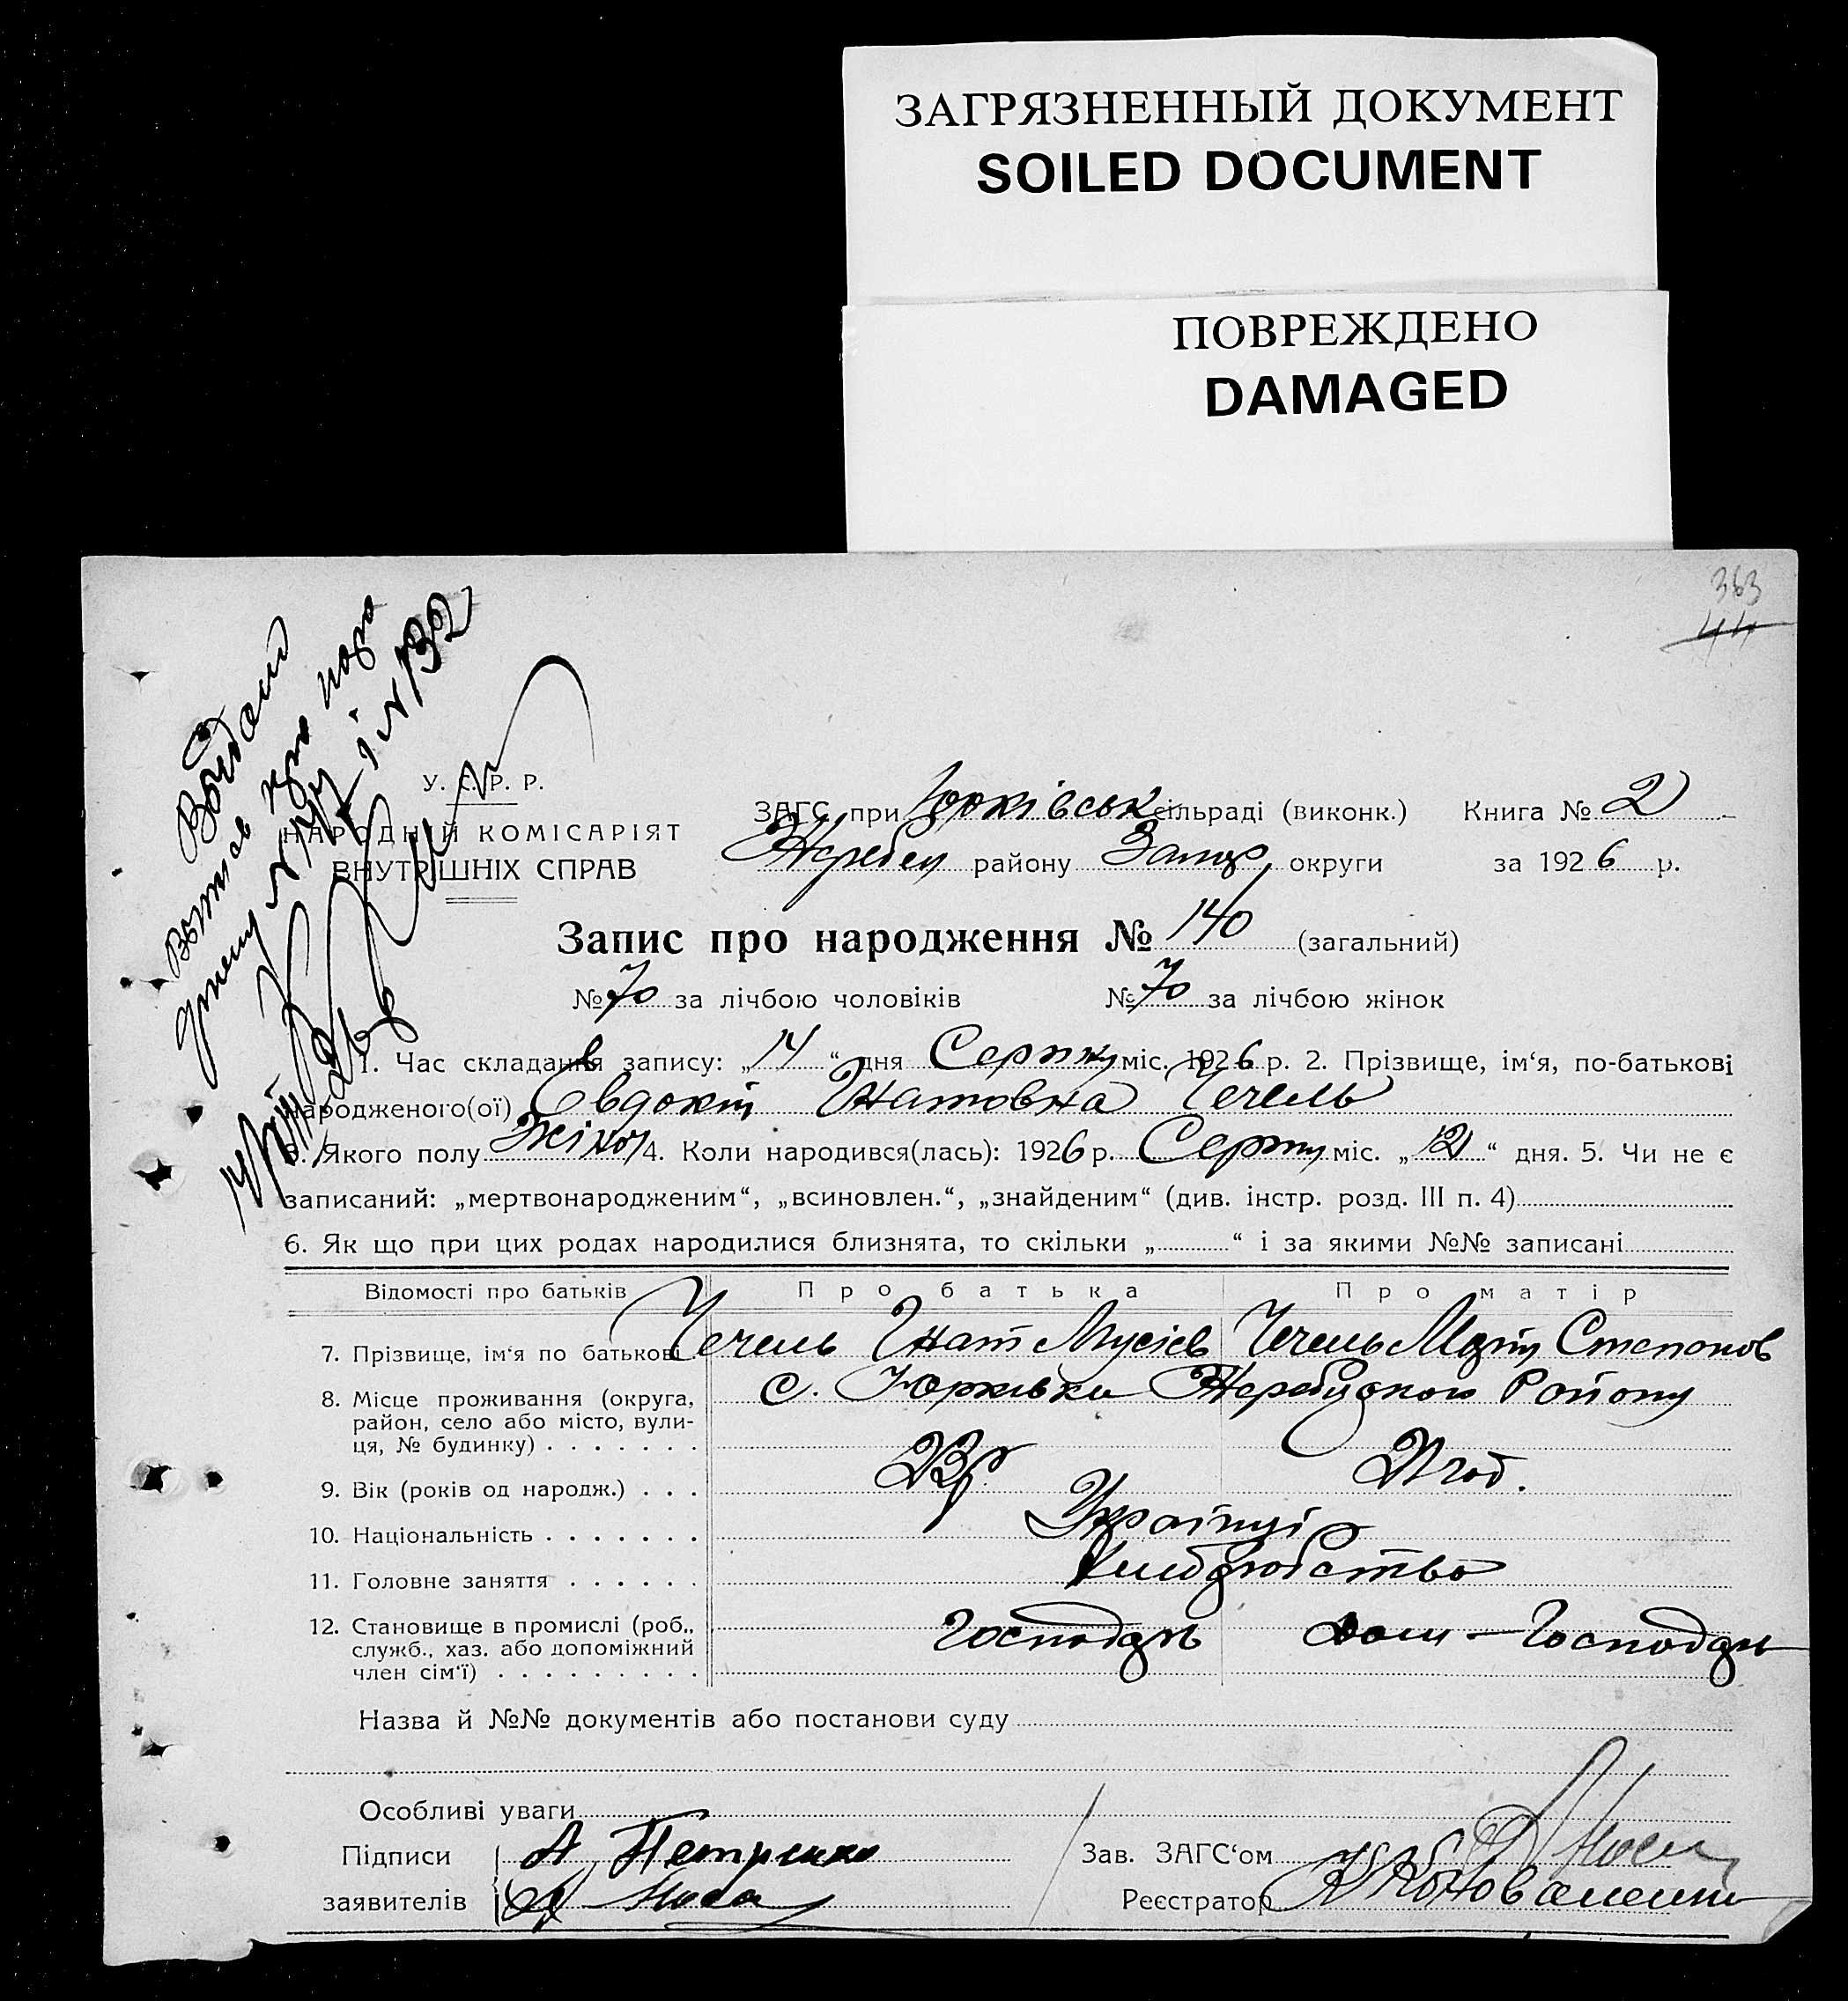 ЗАГРЯЗНЕННЫЙ ДОКУМЕНТ
SOILED DOCUMENT
ПОВРЕЖДЕНО
DAMAGED
363
44
У. С. Р. Р.
НАРОДНІЙ КОМІСАРІЯТ
ВНУТРІШНІХ СПРАВ
ЗАГС при Юрківськ сільраді (виконк.) Книга № 2
Жеребец району Запор округи за 1926 р.
Запис про народження № 140 (загальний)
№ 70 за лічбою чоловіків № 70 за лічбою жінок
1. Час складання запису: „14“ дня Серпну міс. 1926 р. 2. Прізвище, ім‘я, по-батькові
народженого(ої) Євдокія Гнатовна Чечель
3. Якого полу Жіноч 4. Коли народився(лась): 1926 р. Серпну міс. „12“ дня. 5. Чи не є
записаний: „мертвонародженим“, „всиновлен.“, „знайденим“ (див. інстр. розд. III п. 4)
6. Як що при цих родах народилися близнята, то скільки „ “ і за якими №№ записані
Відомості про батьків Про батька Про матір
7. Прізвище, ім‘я по батькові Чечель Гнат Мусієв Чечель Марія Степанов
8. Місце проживання (округа, с. Юрківка Жеребецкого Району
район, село або місто, вули-
ця, № будинку)
9. Вік (років од народж.) 23 р. 21 год.
10. Національність Українці
11. Головне заняття Хліборобство
12. Становище в промислі (роб., Господарь Дом-Господарь
служб., хаз. або допоміжний
член сім‘ї)
Назва й №№ документів або постанови суду
Особливі уваги
Підписи А Петренко Зав. ЗАГС‘ом
заявителів Реєстратор Коноваленко